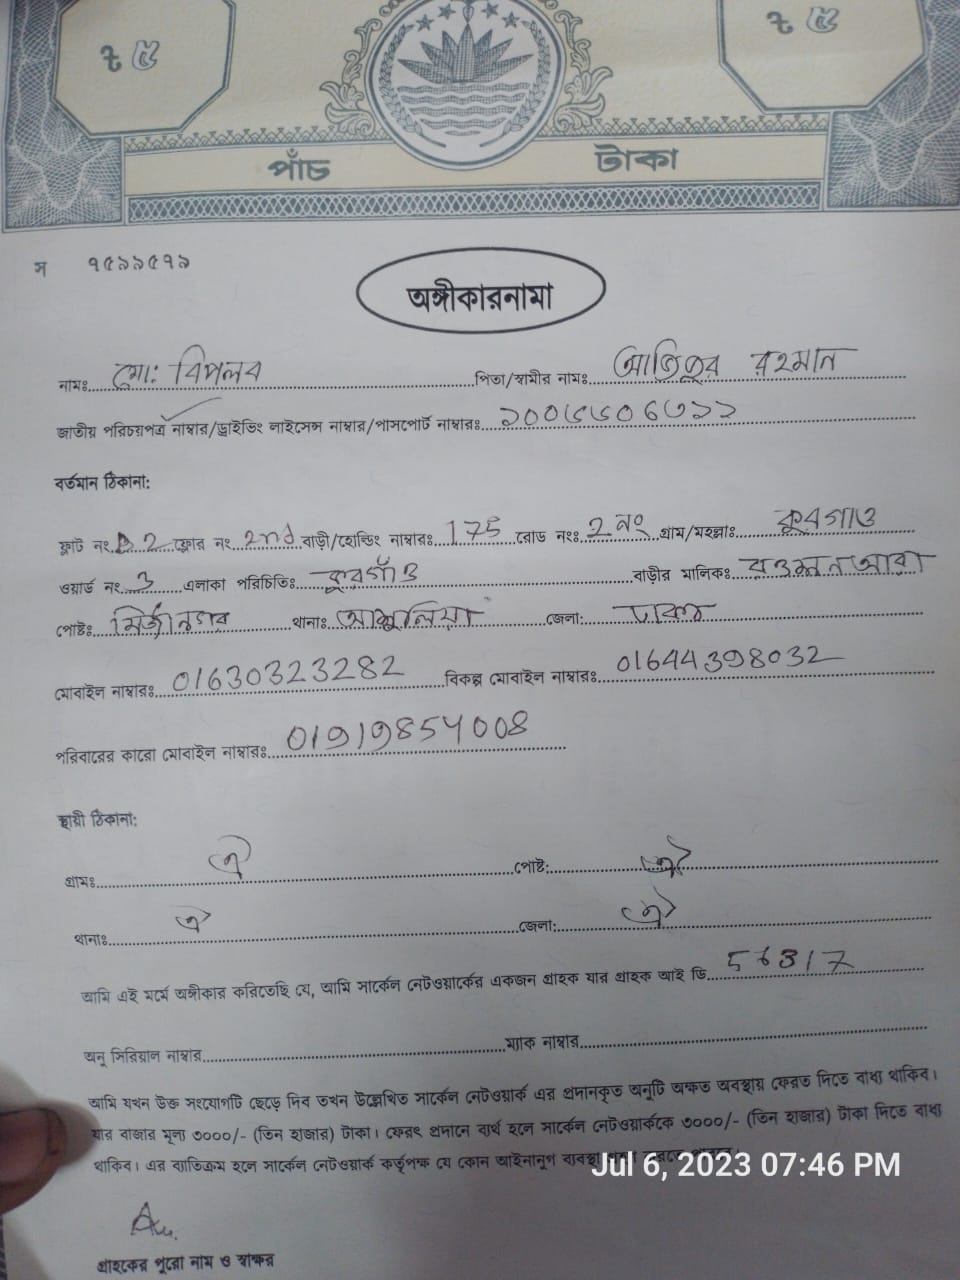 ৳ ৫ ৳ ৫
পাঁচ টাকা
স ৭৫৯৯৫৭৯
অঙ্গীকারনামা
নামঃ মো: বিপলব পিতা/স্বামীর নামঃ রহমান
জাতীয় পরিচয়পত্র নাম্বার/ড্রাইভিং লাইসেন্স নাম্বার/পাসপোর্ট নাম্বারঃ
বর্তমান ঠিকানা:
ফ্লাট নং 2 ফ্লোর নং 2nd বাড়ী/হোল্ডিং নাম্বারঃ 175 রোড নংঃ 2 নং গ্রাম/মহল্লাঃ কুরগাও
ওয়ার্ড নং 3 এলাকা পরিচিতিঃ কুরগাঁও বাড়ীর মালিকঃ
পোষ্টঃ থানাঃ আশুলিয়া জেলা: ঢাকা
মোবাইল নাম্বারঃ 01630323282 বিকল্প মোবাইল নাম্বারঃ 01644398032
পরিবারের কারো মোবাইল নাম্বারঃ 01919854008
স্থায়ী ঠিকানা:
গ্রামঃ ঐ পোষ্ট: ঐ
থানাঃ ঐ জেলা: ঐ
আমি এই মর্মে অঙ্গীকার করিতেছি যে, আমি সার্কেল নেটওয়ার্কের একজন গ্রাহক যার গ্রাহক আই ডি 56317
অনু সিরিয়াল নাম্বার ম্যাক নাম্বার
আমি যখন উক্ত সংযোগটি ছেড়ে দিব তখন উল্লেখিত সার্কেল নেটওয়ার্ক এর প্রদানকৃত অনুটি অক্ষত অবস্থায় ফেরত দিতে বাধ্য থাকিব।
যার বাজার মূল্য ৩০০০/- (তিন হাজার) টাকা। ফেরৎ প্রদানে ব্যর্থ হলে সার্কেল নেটওয়ার্ককে ৩০০০/- (তিন হাজার) টাকা দিতে বাধ্য
থাকিব। এর ব্যতিক্রম হলে সার্কেল নেটওয়ার্ক কর্তৃপক্ষ যে কোন আইনানুগ ব্যবস্থা
Jul 6, 2023 07:46 PM
গ্রাহকের পুরো নাম ও স্বাক্ষর